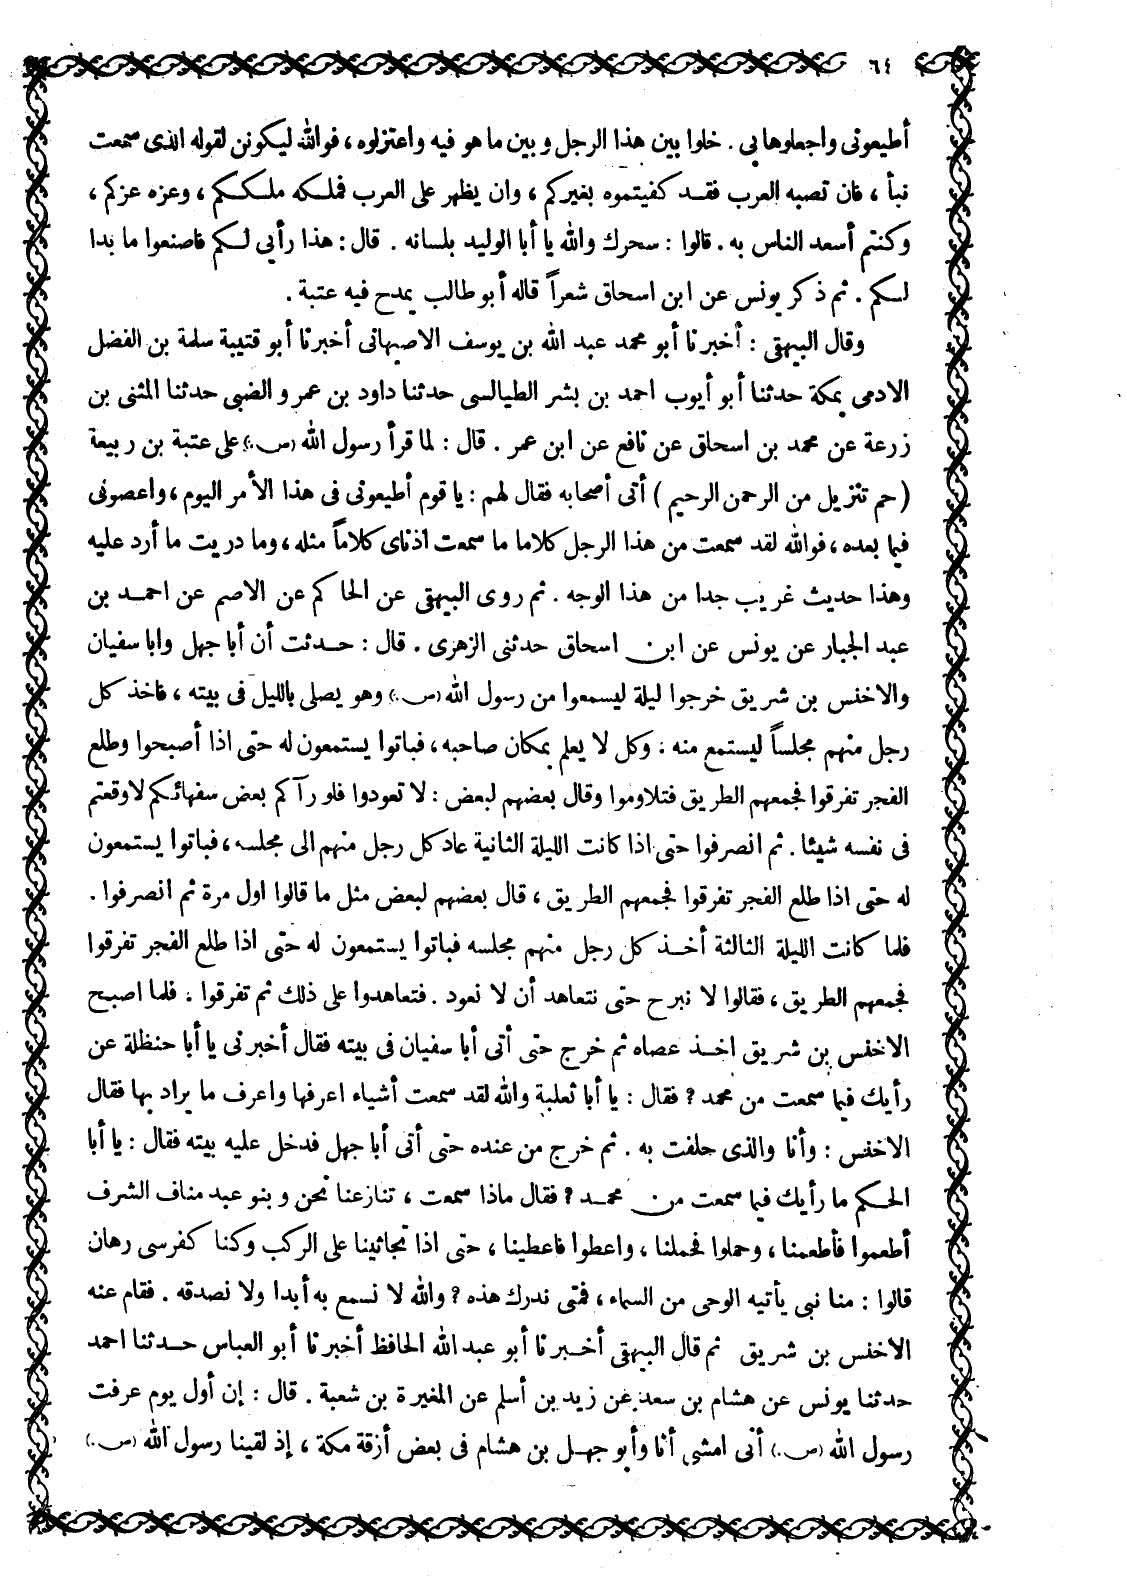 ٦٤
أطيعونى واجعلوها بي . خلوا بين هذا الرجل وبين ما هو فيه واعتزلوه ، فوالله ليكونن لقوله الذى سمعت
نبأ ، فان تصبه العرب فقد كفيتموه بغيركم ، وان يظهر على العرب فملكه ملككم ، وعزه عزكم ،
وكنتم أسعد الناس به . قالوا : سحرك والله يا أبا الوليد بلسانه . قال : هذا رأيي لكم فاصنعوا ما بدا
لكم . ثم ذكر يونس عن ابن اسحاق شعراً قاله أبو طالب يمدح فيه عتبة .
وقال البيهقى : أخبرنا أبو محمد عبد الله بن يوسف الاصبهانى أخبرنا أبو قتيبة سلمة بن الفضل
الادمى بمكة حدثنا أبو أيوب احمد بن بشر الطيالسى حدثنا داود بن عمرو الضبى حدثنا المثنى بن
زرعة عن محمد بن اسحاق عن نافع عن ابن عمر . قال : لما قرأ رسول الله (ص.) على عتبة بن ربيعة
( حم تنزيل من الرحمن الرحيم ) أتى أصحابه فقال لهم : يا قوم أطيعونى فى هذا الأمر اليوم ، واعصونى
فيما بعده ، فوالله لقد سمعت من هذا الرجل كلاما ما سمعت اذناى كلاماً مثله ، وما دريت ما أرد عليه
وهذا حديث غريب جدا من هذا الوجه . ثم روى البيهقى عن الحاكم عن الاصم عن احمد بن
عبد الجبار عن يونس عن ابن اسحاق حدثنى الزهرى . قال : حدثت أن أبا جهل وابا سفيان
والاخنس بن شريق خرجوا ليلة ليسمعوا من رسول الله (ص.) وهو يصلى بالليل فى بيته ، فاخذ كل
رجل منهم مجلساً ليستمع منه ، وكل لا يعلم بمكان صاحبه ، فباتوا يستمعون له حتى اذا أصبحوا وطلع
الفجر تفرقوا فجمعهم الطريق فتلاوموا وقال بعضهم لبعض : لا تعودوا فلو رآكم بعض سفهائكم لاوقعتم
فى نفسه شيئا . ثم انصرفوا حتى اذا كانت الليلة الثانية عاد كل رجل منهم الى مجلسه ، فباتوا يستمعون
له حتى اذا طلع الفجر تفرقوا فجمعهم الطريق ، قال بعضهم لبعض مثل ما قالوا اول مرة ثم انصرفوا .
فلما كانت الليلة الثالثة أخذ كل رجل منهم مجلسه فباتوا يستمعون له حتى اذا طلع الفجر تفرقوا
فجمعهم الطريق ، فقالوا لا نبرح حتى نتعاهد أن لا نعود . فتعاهدوا على ذلك ثم تفرقوا ، فلما اصبح
الاخنس بن شريق اخذ عصاه ثم خرج حتى أتى أبا سفيان فى بيته فقال أخبرنى يا أبا حنظلة عن
رأيك فيما سمعت من محمد ؟ فقال : يا أبا ثعلبة والله لقد سمعت أشياء اعرفها واعرف ما يراد بها فقال
الاخنس : وأنا والذى حلفت به . ثم خرج من عنده حتى أتى أبا جهل فدخل عليه بيته فقال : يا أبا
الحكم ما رأيك فيما سمعت من محمد ؟ فقال ماذا سمعت ، تنازعنا نحن وبنو عبد مناف الشرف
أطعموا فأطعمنا ، وحملوا فحملنا ، واعطوا فاعطينا ، حتى اذا تجاثينا على الركب وكنا كفرسى رهان
قالوا : منا نبى يأتيه الوحى من السماء ، فمتى ندرك هذه ؟ والله لا نسمع به أبدا ولا نصدقه . فقام عنه
الاخنس بن شريق ثم قال البيهقى أخبرنا أبو عبد الله الحافظ أخبرنا أبو العباس حدثنا احمد
حدثنا يونس عن هشام بن سعد عن زيد بن أسلم عن المغيرة بن شعبة . قال : إن أول يوم عرفت
رسول الله (ص.) أنى امشى أنا وأبو جهل بن هشام فى بعض أزقة مكة ، إذ لقينا رسول الله (ص.)